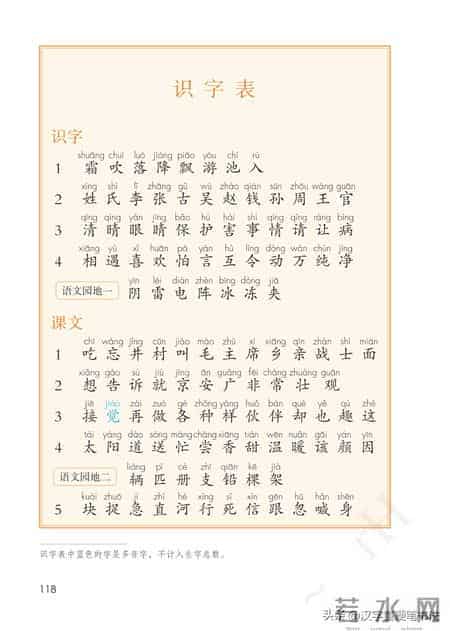 识字表
识字
shuāng chuī luò jiàng piāo yóu chí rù
1 霜 吹 落 降 飘 游 池 入
xìng shì lǐ zhāng gǔ wú zhào qián sūn zhōu wáng guān
2 姓 氏 李 张 古 吴 赵 钱 孙 周 王 官
qīng qíng yǎn jīng bǎo hù hài shì qíng qǐng ràng bìng
3 清 晴 眼 睛 保 护 害 事 情 请 让 病
xiāng yù xǐ huān pà yán hù lìng dòng wàn chún jìng
4 相 遇 喜 欢 怕 言 互 令 动 万 纯 净
yīn léi diàn zhèn bīng dòng jiā
语文园地一 阴 雷 电 阵 冰 冻 夹
课文
chī wàng jǐng cūn jiào máo zhǔ xí xiāng qīn zhàn shì miàn
1 吃 忘 井 村 叫 毛 主 席 乡 亲 战 士 面
xiǎng gào sù jiù jīng ān guǎng fēi cháng zhuàng guān
2 想 告 诉 就 京 安 广 非 常 壮 观
jiē jiào zài zuò gè zhǒng yàng huǒ bàn què yě qù zhè
3 接 觉 再 做 各 种 样 伙 伴 却 也 趣 这
tài yáng dào sòng máng cháng xiāng tián wēn nuǎn gāi yán yīn
4 太 阳 道 送 忙 尝 香 甜 温 暖 该 颜 因
liàng pǐ cè zhī qiān kē jià
语文园地二 辆 匹 册 支 铅 棵 架
kuài zhuō jí zhí hé xíng sǐ xìn gēn hū hǎn shēn
5 块 捉 急 直 河 行 死 信 跟 忽 喊 身
识字表中蓝色的字是多音字，不计入生字总数。
118
若水网